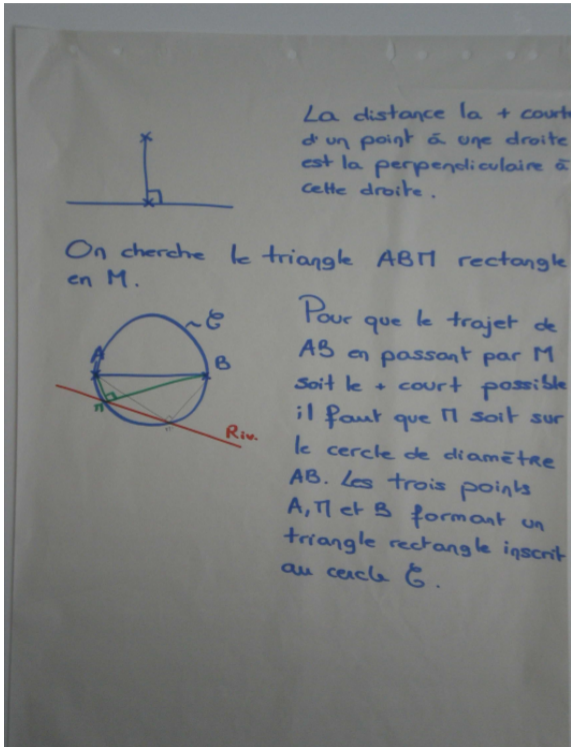 La distance la + courte
d'un point à une droite
est la perpendiculaire à
cette droite.
On cherche le triangle ABM rectangle
en M.
~ C
A
B
M
Riv.
Pour que le trajet de
AB en passant par M
soit le + court possible
il faut que M soit sur
le cercle de diamètre
AB. Les trois points
A, M et B formant un
triangle rectangle inscrit
au cercle C.